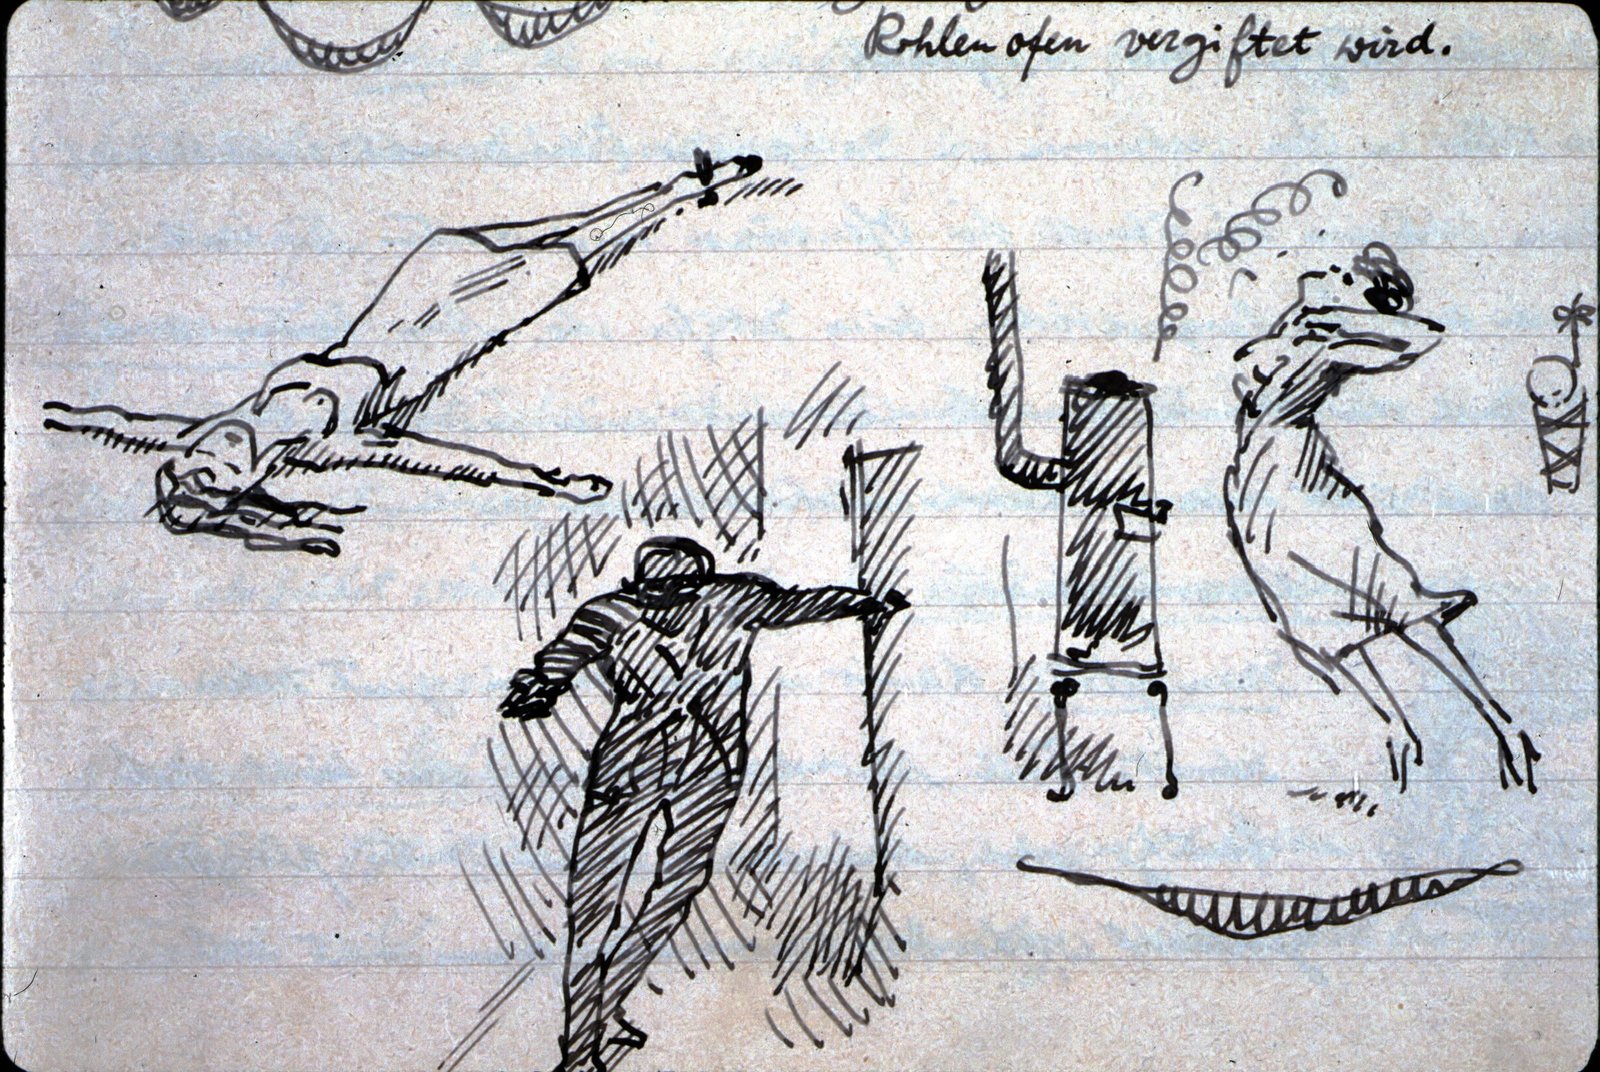 Kohlenofen vergiftet wird.